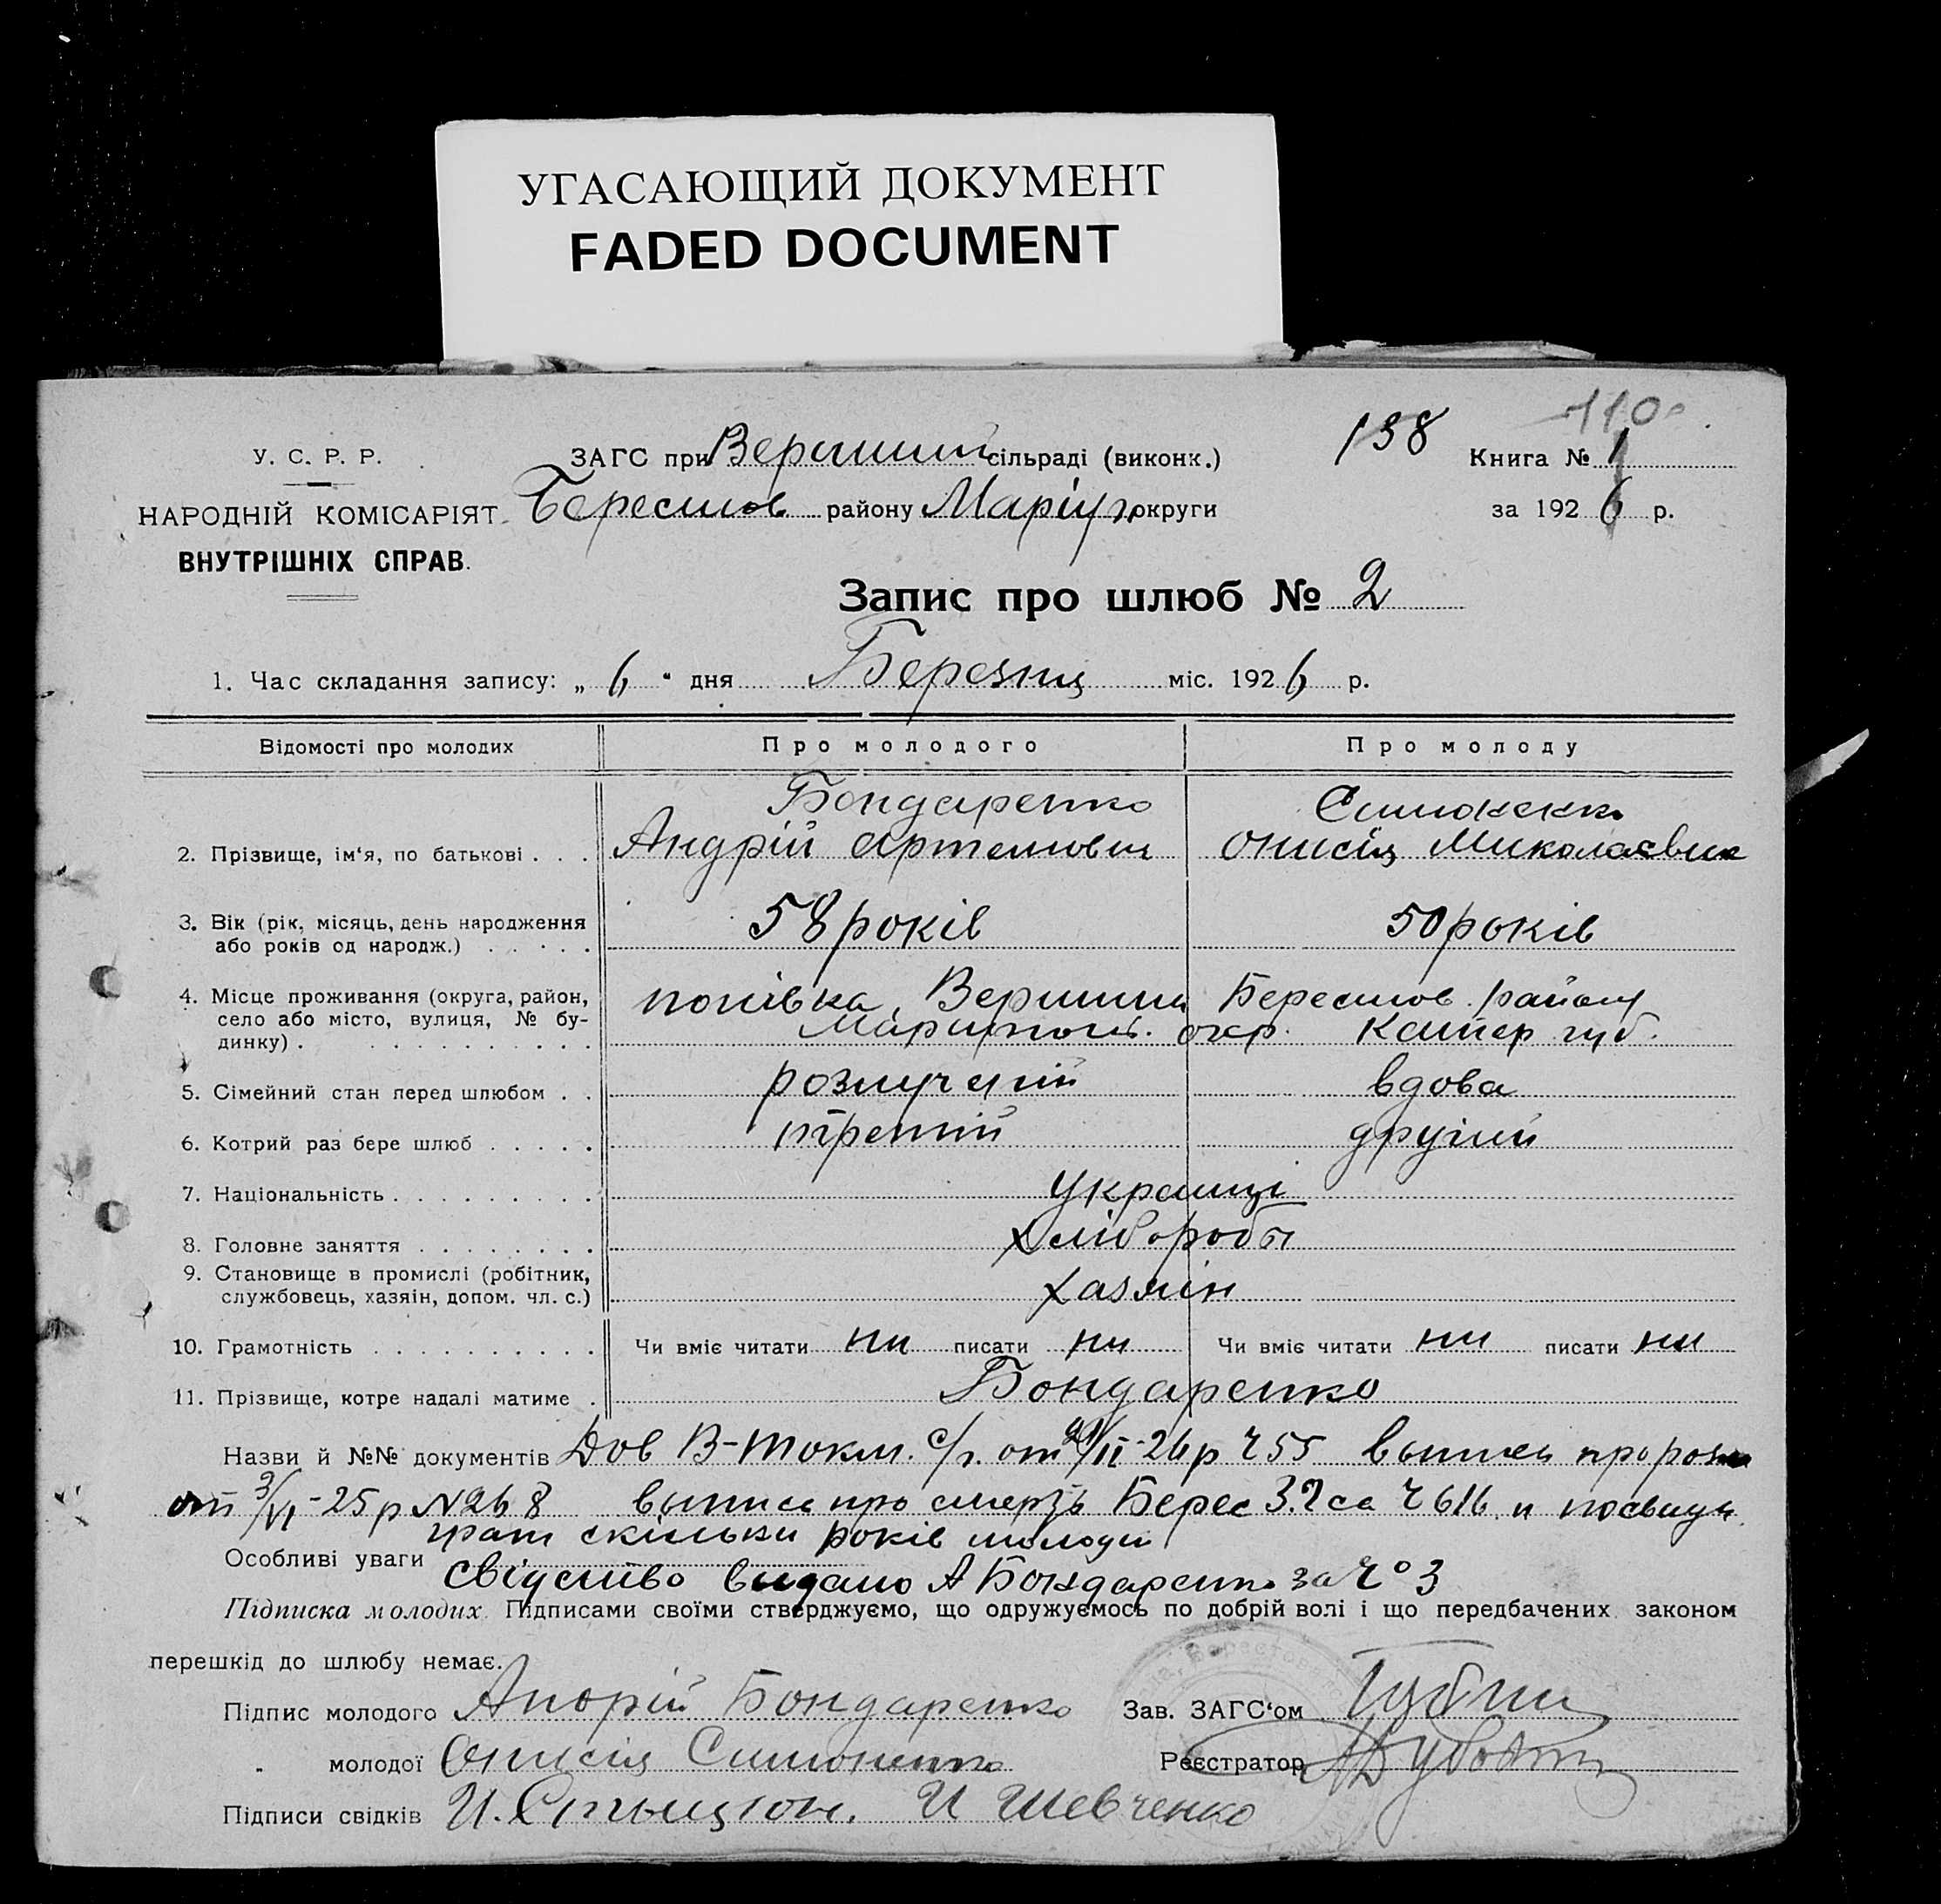 УГАСАЮЩИЙ ДОКУМЕНТ
FADED DOCUMENT
110
У. С. Р. Р.
ЗАГС при Вершини сільраді (виконк.)
138
Книга № 1
НАРОДНІЙ КОМІСАРІЯТ
ВНУТРІШНІХ СПРАВ.
Берестов району Маріуп округи
за 1926 р.
Запис про шлюб № 2
1. Час складання запису: „ 6 “ дня Березня міс. 1926 р.
Відомості про молодих
Про молодого
Про молоду
2. Прізвище, ім‘я, по батькові . . .
Бондаренко
Андрій Артемович
Симоненко
Онисія Миколаєвна
3. Вік (рік, місяць, день народження
або років од народж.) . . . . .
58 років
50 років
4. Місце проживання (округа, район,
село або місто, вулиця, № бу-
динку) . . . . . . . . . . .
Вершини Берестов. району
Мариупольс. окр. Катер губ.
5. Сімейний стан перед шлюбом . .
розлучений
вдова
6. Котрий раз бере шлюб . . . . .
третій
другий
7. Національність . . . . . . . . .
Украинці
8. Головне заняття . . . . . . . .
Хліборобы
9. Становище в промислі (робітник,
службовець, хазяін, допом. чл. с.)
Хазяін
10. Грамотність . . . . . . . . . .
Чи вміє читати ни писати ни
Чи вміє читати ни писати ни
11. Прізвище, котре надалі матиме .
Бондаренко
Назви й №№ документів Дов В-Токм. с/р. от /II-26р Ч 55 выпись про розл
от 3/VI-25р N 268 выпись про смерть Берес Ч 616 и посвидч
скільки років молодій
Особливі уваги
Свідєтво видано А Бондаренко за Ч° 3
Підписка молодих. Підписами своїми стверджуємо, що одружуємось по добрій волі і що передбачених законом
перешкід до шлюбу немає.
Підпис молодого Андрій Бондаренко
Зав. ЗАГС‘ом
„ молодої Онисія Симоненко
Реєстратор
Підписи свідків И. И Шевченко